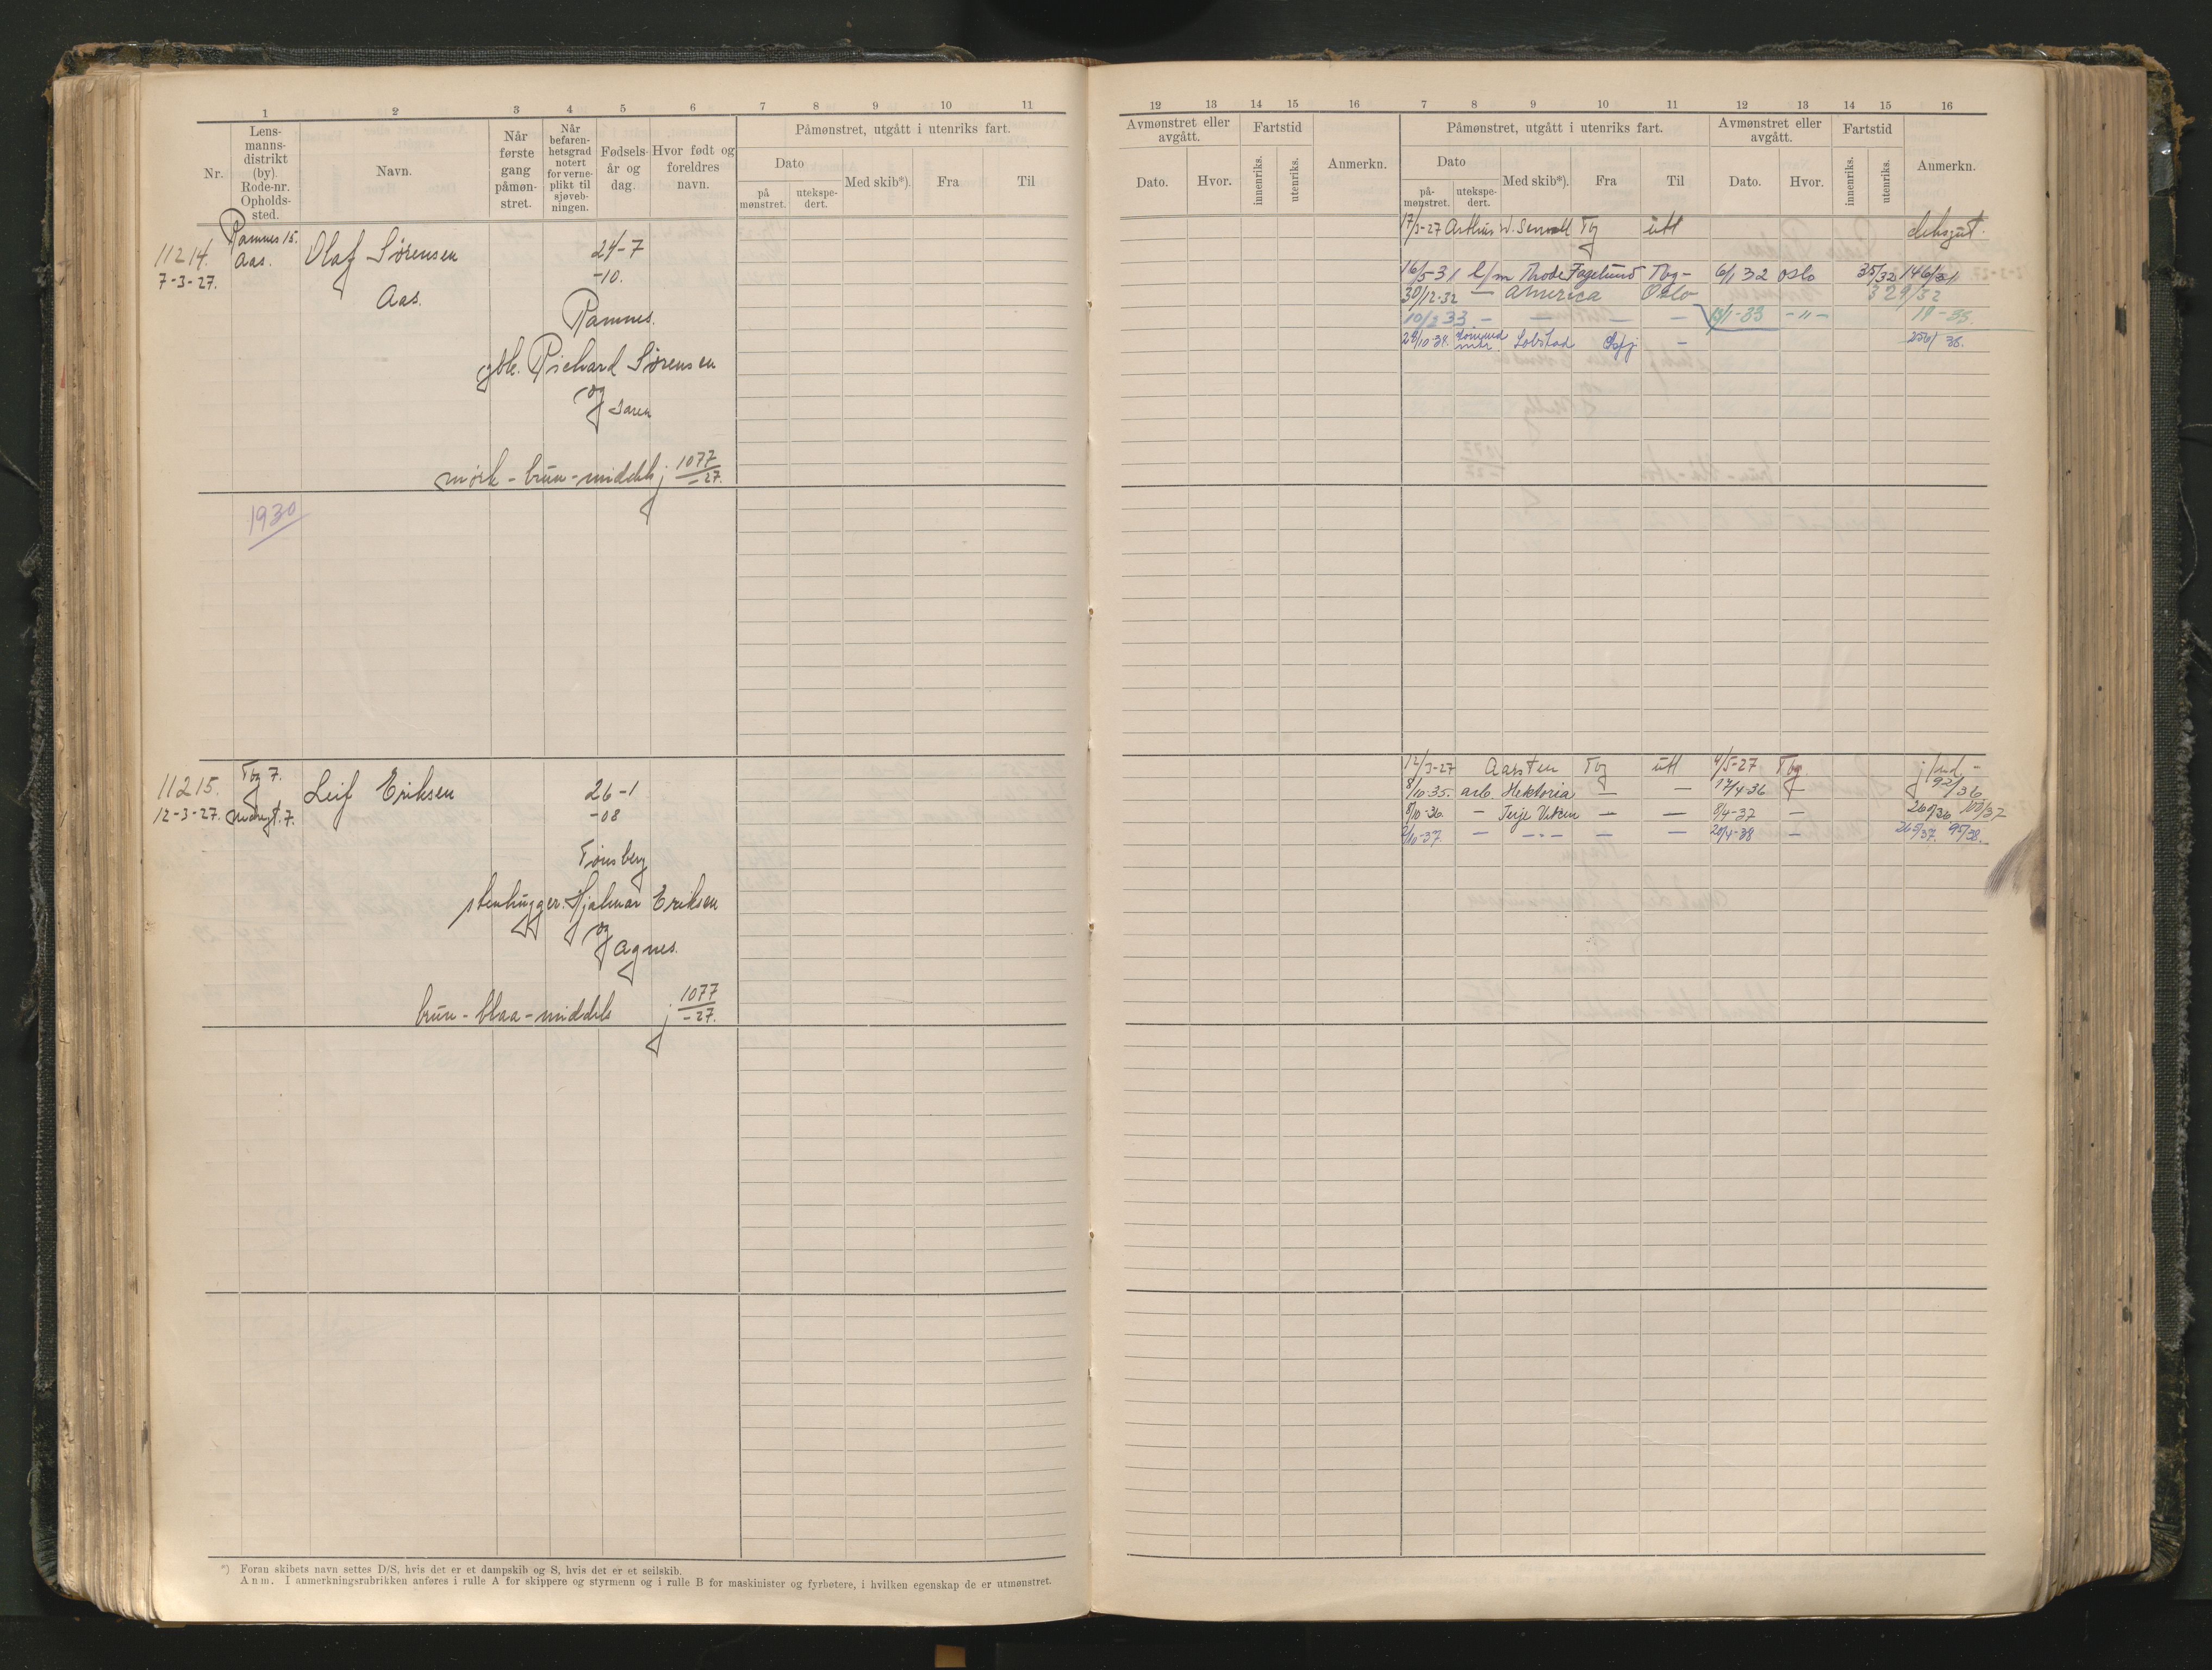 1 2 3 4 5 6 7 8 9 10 11
Nr.
Lens-
manns-
distrikt
(by).
Rode-nr.
Opholds-
sted.
Navn.
Når
første
gang
påmøn-
stret.
Når
befaren-
hetsgrad
notert
for verne-
plikt til
sjøveb-
ningen.
Fødsels-
år og
dag.
Hvor født og
foreldres
navn.
Påmønstret, utgått i utenriks fart.
Dato
på
mønstret.
utekspe-
dert.
Med skib*).
Fra
Til
11214.
7-3-27.
Ramnes 15.
Aas.
Olaf Sørensen
Aas.
24-7
-10.
Ramnes.
gbr. Richard Sørensen
og
mørk - brun - middels j 1077
-27.
1930
11215.
12-3-27.
Tbg 7.
Leif Eriksen
26-1
-08
Tønsberg
stenhugger Hjalmar Eriksen
og
Agnes.
brun - blaa - middels j 1077
-27.
*) Foran skibets navn settes D/S, hvis det er et dampskib og S, hvis det er et seilskib.
Anm. I anmerkningsrubrikken anføres i rulle A for skippere og styrmenn og i rulle B for maskinister og fyrbøtere, i hvilken egenskap de er utmønstret.
12 13 14 15 16 7 8 9 10 11 12 13 14 15 16
Avmønstret eller
avgått.
Dato.
Hvor.
Fartstid
innenriks.
utenriks.
Anmerkn.
Påmønstret, utgått i utenriks fart.
Dato
på-
mønstret.
utekspe-
dert.
Med skib*).
Fra
Til
Avmønstret eller
avgått.
Dato.
Hvor.
Fartstid
innenriks.
utenriks.
Anmerkn.
17/3-27 Arthur W. Sewall Tbg utl dæksgut.
16/5-31 l/m Thode Fagelund Tbg - 6/1 32 Oslo 35/32 146/31
30/12-32 - America Oslo 329/32
10/2 33 - - - - 13/1-33 -"- 19-33.
24/10-34. Solstad -
12/3-27 Aarsten Tbg utl 4/5-27 Tbg.
8/10-35. arb. Hektoria - - 17/4-36 - 92/36
8/10-36. - Terje Viken - - 8/4-37 - 260/36. 103/37
2/10-37. - -"- - - 20/4-38 - 265/37. 95/38.